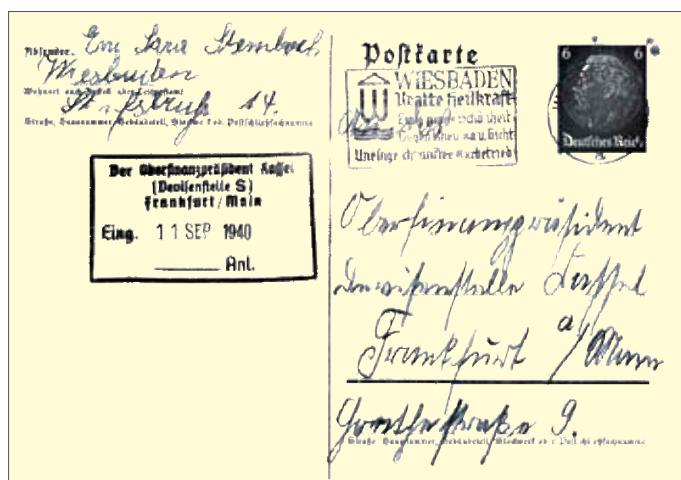 Absender:
Wiesbaden
Wohnort, auch Zustell- oder Leitpostamt
14.
Straße, Hausnummer, Gebäudeteil, Stockwerk od. Postschließfachnummer
Der Oberfinanzpräsident Kassel
(Devisenstelle S)
Frankfurt/Main
Eing. 11 SEP 1940
Anl.
Postkarte
6 6
Deutsches Reich
WIESBADEN
Uralte Heilkraft
Gegen Rheuma u. Gicht
Oberfinanzpräsident
Devisenstelle Kassel
Frankfurt a/Main
Goethestraße 9.
Straße, Hausnummer, Gebäudeteil, Stockwerk od. Postschließfachnummer